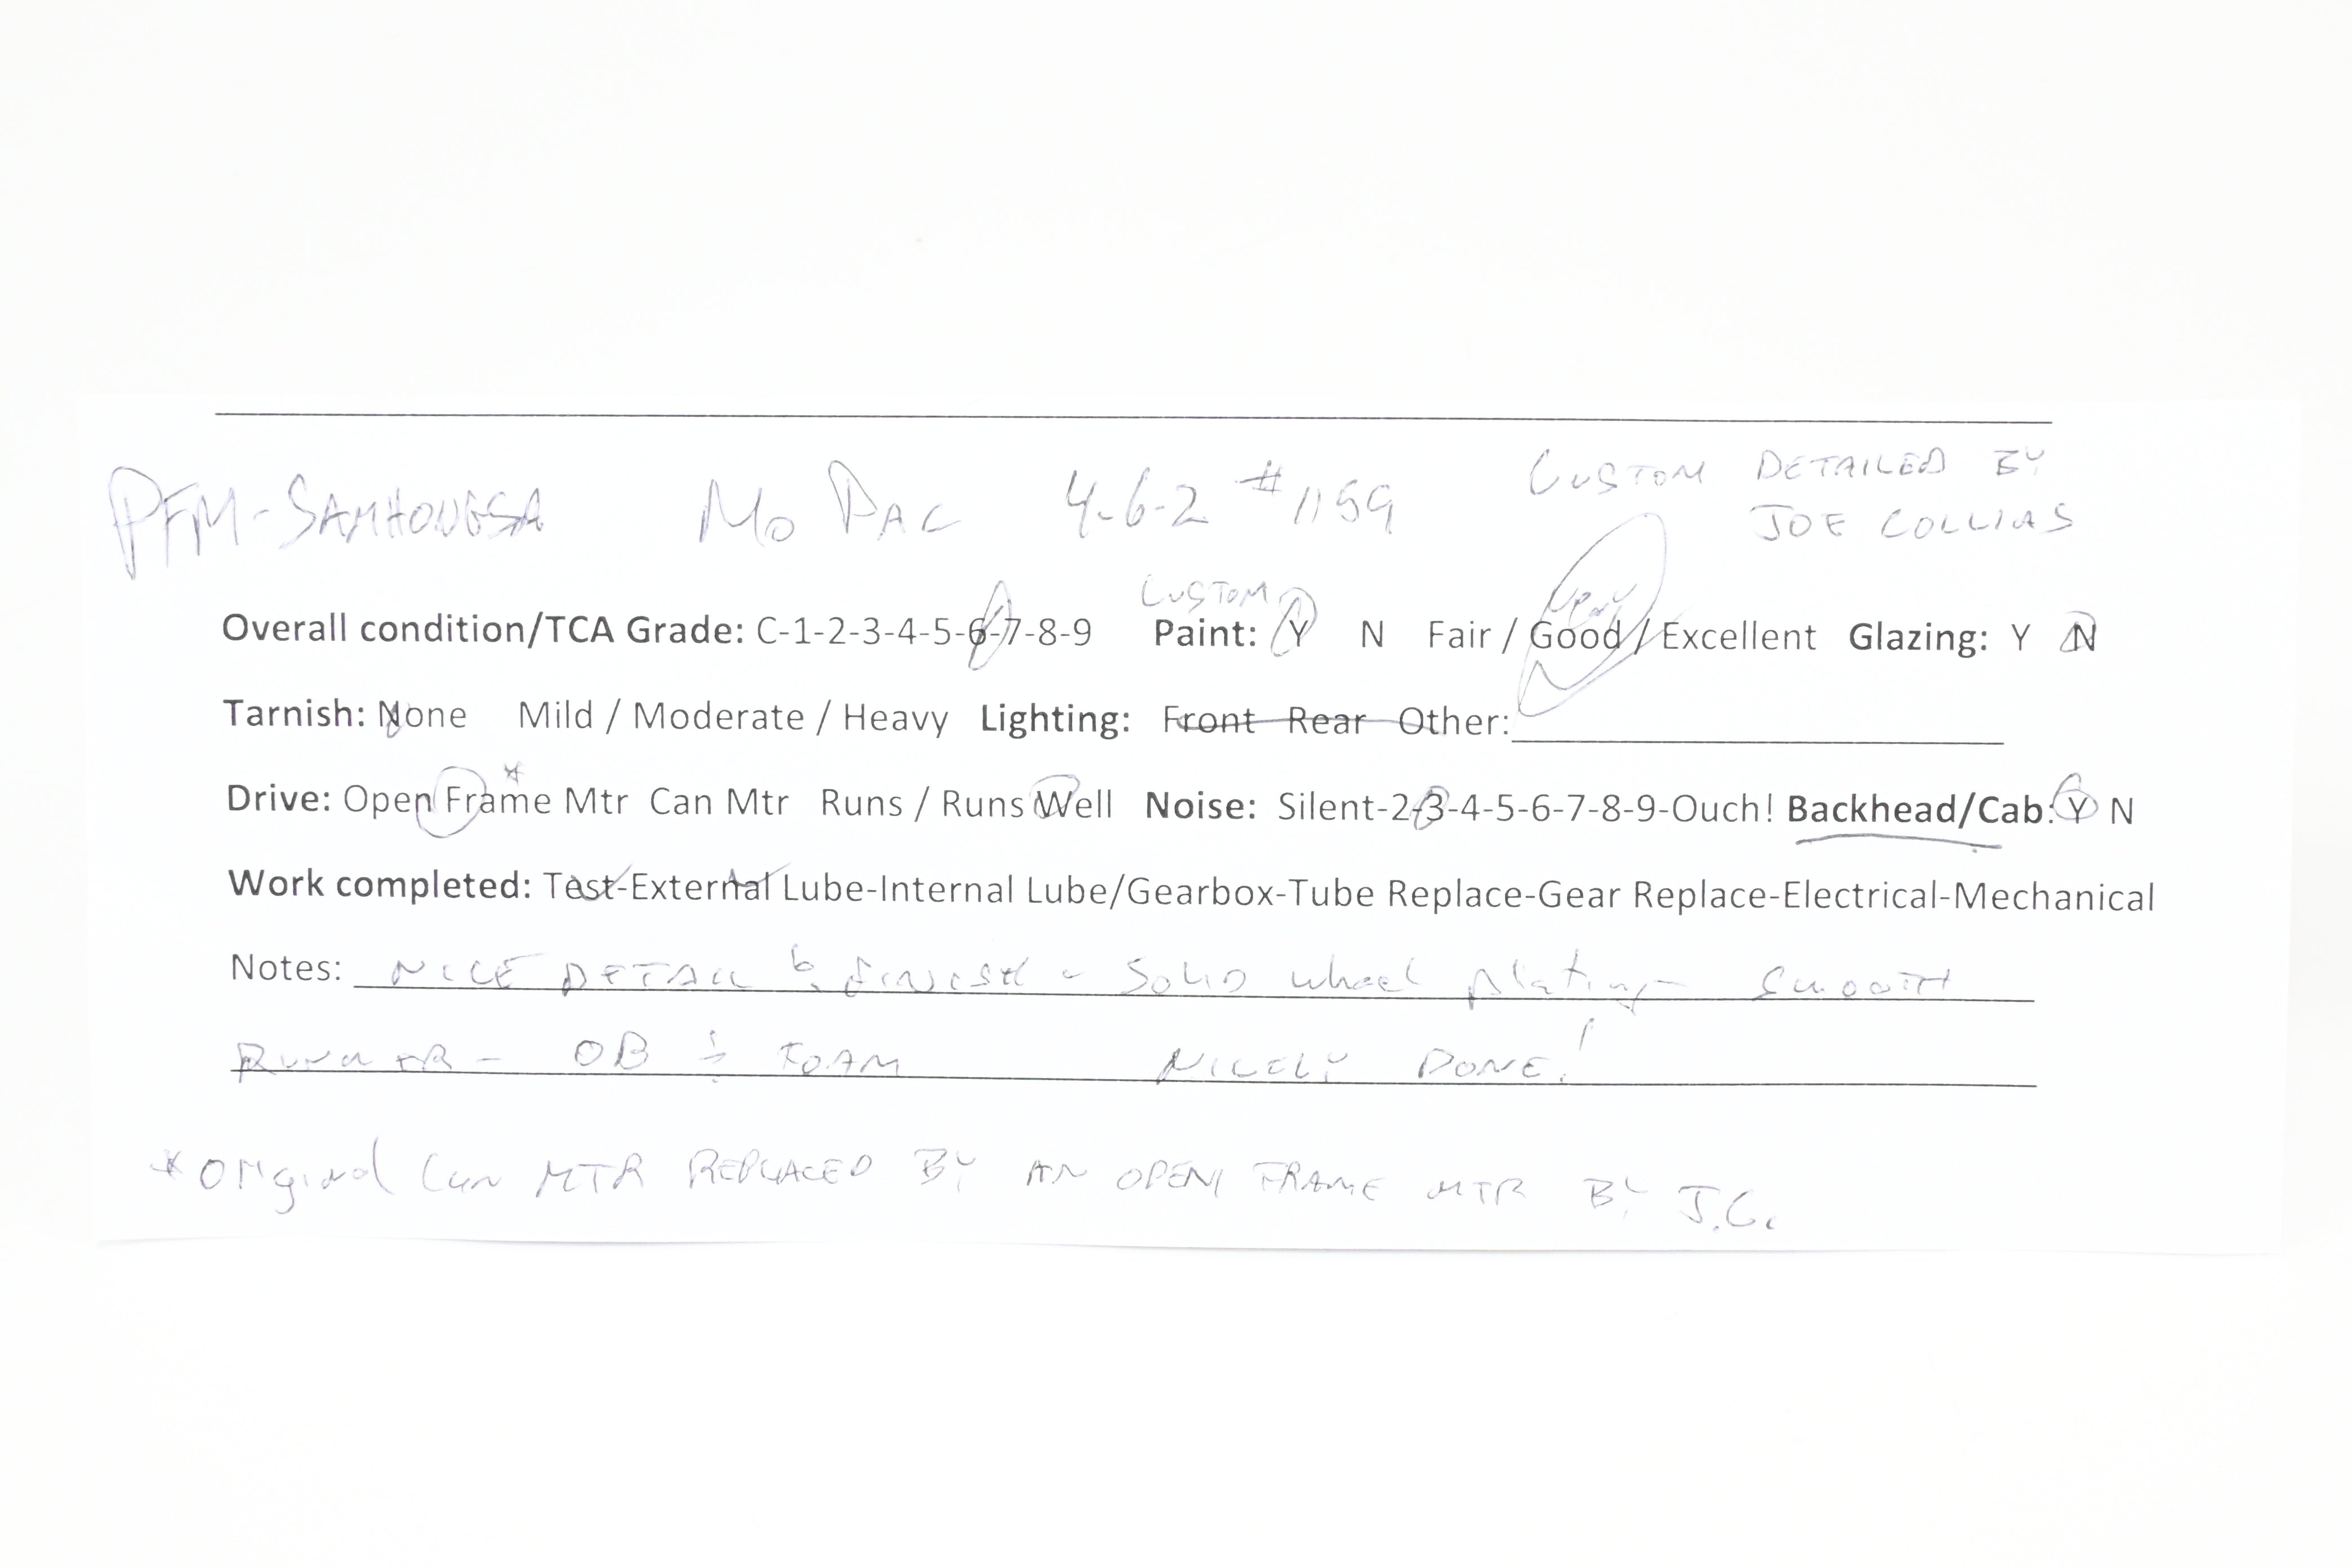 PFM-SAMHONGSA Mo PAC 4-6-2 #1159 CUSTOM DETAILED BY
JOE COLLIAS
CUSTOM very
Overall condition/TCA Grade: C-1-2-3-4-5-6-7-8-9 Paint: Y N Fair / Good / Excellent Glazing: Y N
Tarnish: None Mild / Moderate / Heavy Lighting: Front Rear Other:
Drive: Open Frame* Mtr Can Mtr Runs / Runs Well Noise: Silent-2-3-4-5-6-7-8-9-Ouch! Backhead/Cab: Y N
Work completed: Test-External Lube-Internal Lube/Gearbox-Tube Replace-Gear Replace-Electrical-Mechanical
Notes: NICE DETAIL & FINISH - SOLID wheel plating - SMOOTH
RUNNER - OB & FOAM NICELY DONE!
*Original Can MTR REPLACED BY AN OPEN FRAME MTR BY J.C.